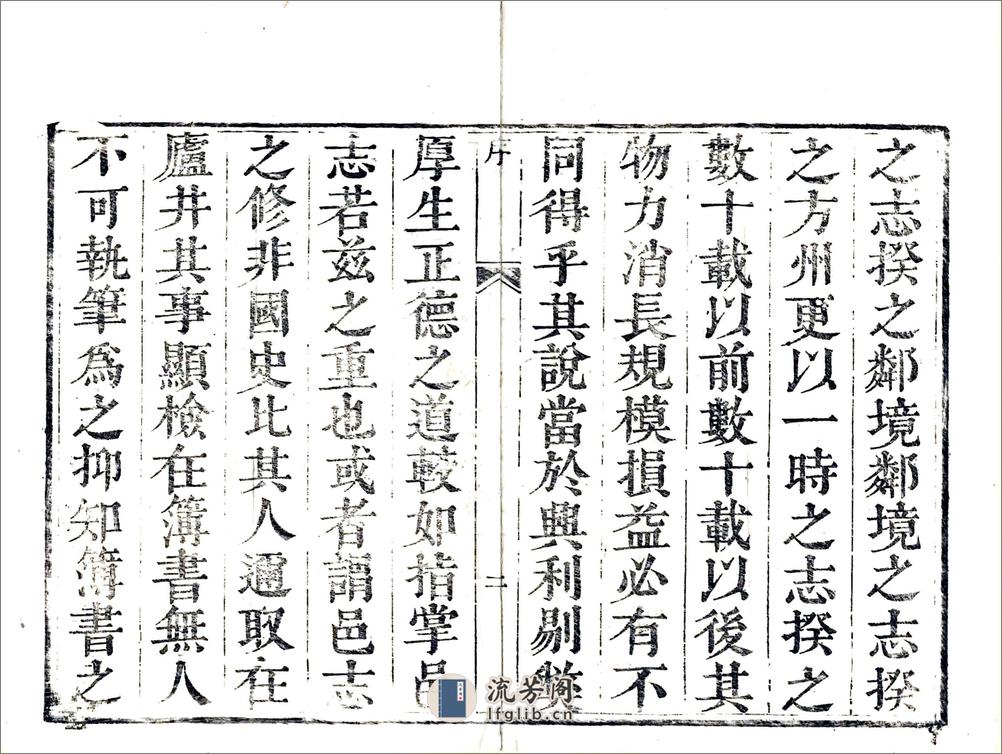 之志揆之鄰境鄰境之志揆
之方州更以一時之志揆之
數十載以前數十載以後其
物力消長規模損益必有不
同得乎其說當於興利剔弊
序
二
厚生正德之道較如指掌邑
志若兹之重也或者謂邑志
之修非國史比其人邇取在
廬井其事顯檢在簿書無人
不可執筆為之抑知簿書之
流芳阁
lfglib.cn